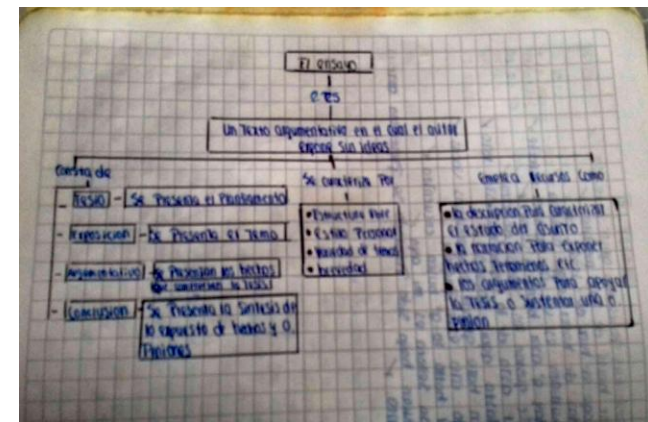 El ensayo
es
Un Texto argumentativo en el cual el autor
expone sus ideas
Consta de
- Tesis - Se Presenta el Planteamiento
- Exposicion - Se Presenta el Tema
- Argumentativo - Se Presentan los hechos
que la Tesis
- Conclusion - Se Presenta la Sintesis de
lo expuesto de hechos y O
Piniones
Se caracteriza Por
• Estructura libre
• Estilo Personal
• de temas
• brevedad
Emplea Recursos Como
• la descripcion Para Caracterizar
el estado del asunto
• la narracion Para exponer
hechos Fenomenos etc
• los argumentos Para apoyar
la Tesis o Sustentar una o
pinion